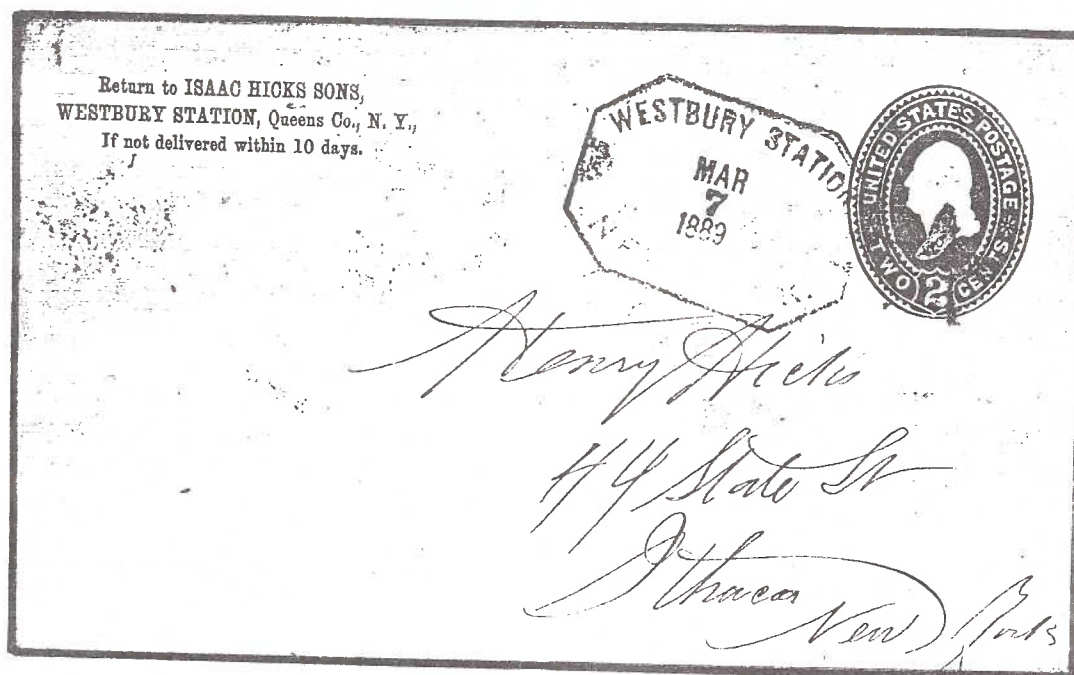 Return to ISAAC HICKS SONS,
WESTBURY STATION, Queens Co., N. Y.,
If not delivered within 10 days.
WESTBURY STATION
MAR
7
1889
UNITED STATES POSTAGE
TWO 2 CENTS
Henry Hicks
44 State St
Ithaca
New York